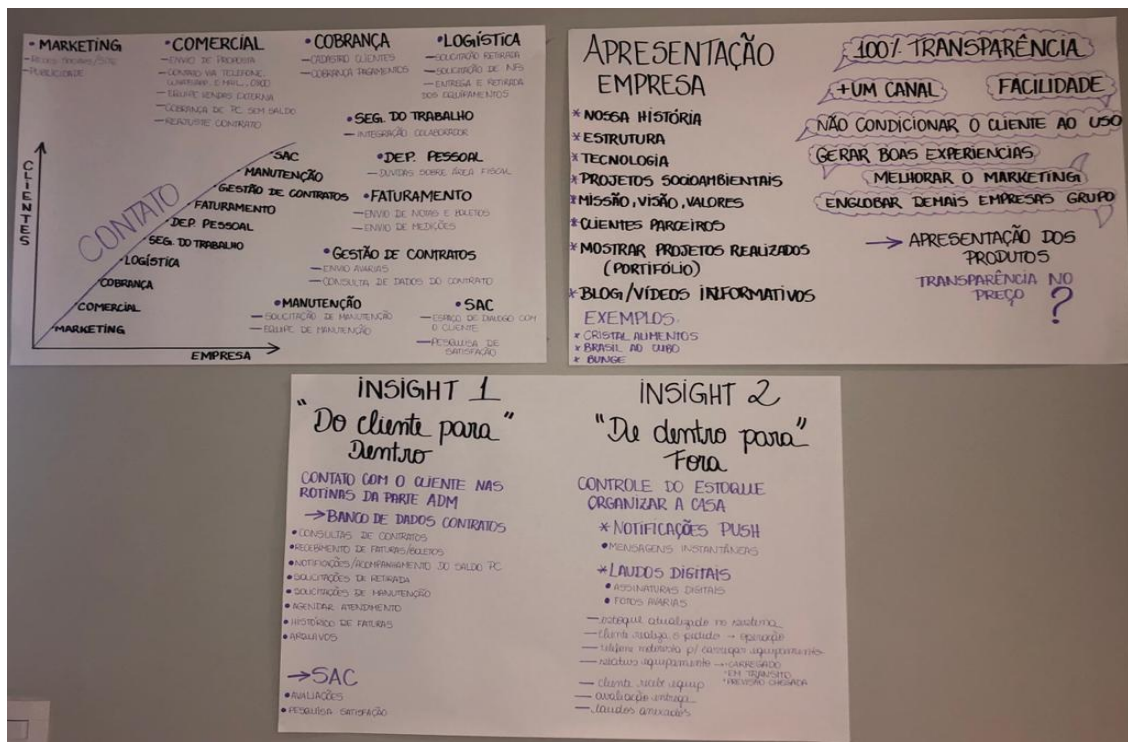 • MARKETING
— REDES SOCIAIS/SITE
— PUBLICIDADE
• COMERCIAL
— ENVIO DE PROPOSTA
— CONTATO VIA TELEFONE,
WHATSAPP, E-MAIL,
— EQUIPE VENDAS EXTERNA
— COBRANÇA DE PC SEM SALDO
— REAJUSTE CONTRATO
• COBRANÇA
— CADASTRO CLIENTES
— COBRANÇA PAGAMENTOS
• LOGÍSTICA
— SOLICITAÇÃO RETIRADA
— SOLICITAÇÃO DE NFS
— ENTREGA E RETIRADA
DOS EQUIPAMENTOS
• SEG. DO TRABALHO
— INTEGRAÇÃO COLABORADOR
• DEP. PESSOAL
— DUVIDAS SOBRE ÁREA FISCAL
• FATURAMENTO
— ENVIO DE NOTAS E BOLETOS
— ENVIO DE MEDIÇÕES
• GESTÃO DE CONTRATOS
— ENVIO AVARIAS
— CONSULTA DE DADOS DO CONTRATO
• MANUTENÇÃO
— SOLICITAÇÃO DE MANUTENÇÃO
— EQUIPE DE MANUTENÇÃO
• SAC
— ESPAÇO DE DIALOGO COM
O CLIENTE
— PESQUISA DE
SATISFAÇÃO
CLIENTES
CONTATO
SAC
MANUTENÇÃO
GESTÃO DE CONTRATOS
FATURAMENTO
DEP. PESSOAL
SEG. DO TRABALHO
LOGÍSTICA
COBRANÇA
COMERCIAL
MARKETING
EMPRESA
APRESENTAÇÃO
EMPRESA
* NOSSA HISTÓRIA
* ESTRUTURA
* TECNOLOGIA
* PROJETOS SOCIOAMBIENTAIS
* MISSÃO, VISÃO, VALORES
* CLIENTES PARCEIROS
* MOSTRAR PROJETOS REALIZADOS
(PORTIFÓLIO)
* BLOG/VÍDEOS INFORMATIVOS
EXEMPLOS:
* CRISTAL ALIMENTOS
* BRASIL AO CUBO
* BUNGE
100% TRANSPARÊNCIA
+UM CANAL
FACILIDADE
NÃO CONDICIONAR O CLIENTE AO USO
GERAR BOAS EXPERIENCIAS
MELHORAR O MARKETING
ENGLOBAR DEMAIS EMPRESAS GRUPO
→ APRESENTAÇÃO DOS
PRODUTOS
TRANSPARÊNCIA NO
PREÇO ?
INSIGHT 1
"Do cliente para"
Dentro
CONTATO COM O CLIENTE NAS
ROTINAS DA PARTE ADM
→ BANCO DE DADOS CONTRATOS
• CONSULTAS DE CONTRATOS
• RECEBIMENTO DE FATURAS/BOLETOS
• NOTIFICAÇÕES/ACOMPANHAMENTO DO SALDO PC
• SOLICITAÇÕES DE RETIRADA
• SOLICITAÇÕES DE MANUTENÇÃO
• AGENDAR ATENDIMENTO
• HISTÓRICO DE FATURAS
• ARQUIVOS
→ SAC
• AVALIAÇÕES
• PESQUISA SATISFAÇÃO
INSIGHT 2
"De dentro para"
Fora
CONTROLE DO ESTOQUE
ORGANIZAR A CASA
* NOTIFICAÇÕES PUSH
• MENSAGENS INSTANTÂNEAS
* LAUDOS DIGITAIS
• ASSINATURAS DIGITAIS
• FOTOS AVARIAS
— estoque atualizado no sistema
— cliente realiza o pedido → operação
— telefone motorista p/ carregar equipamento
— equipamento → • CARREGADO
• EM TRANSITO
• PREVISÃO CHEGADA
— cliente recebe equip
— avaliação entrega
— laudos anexados